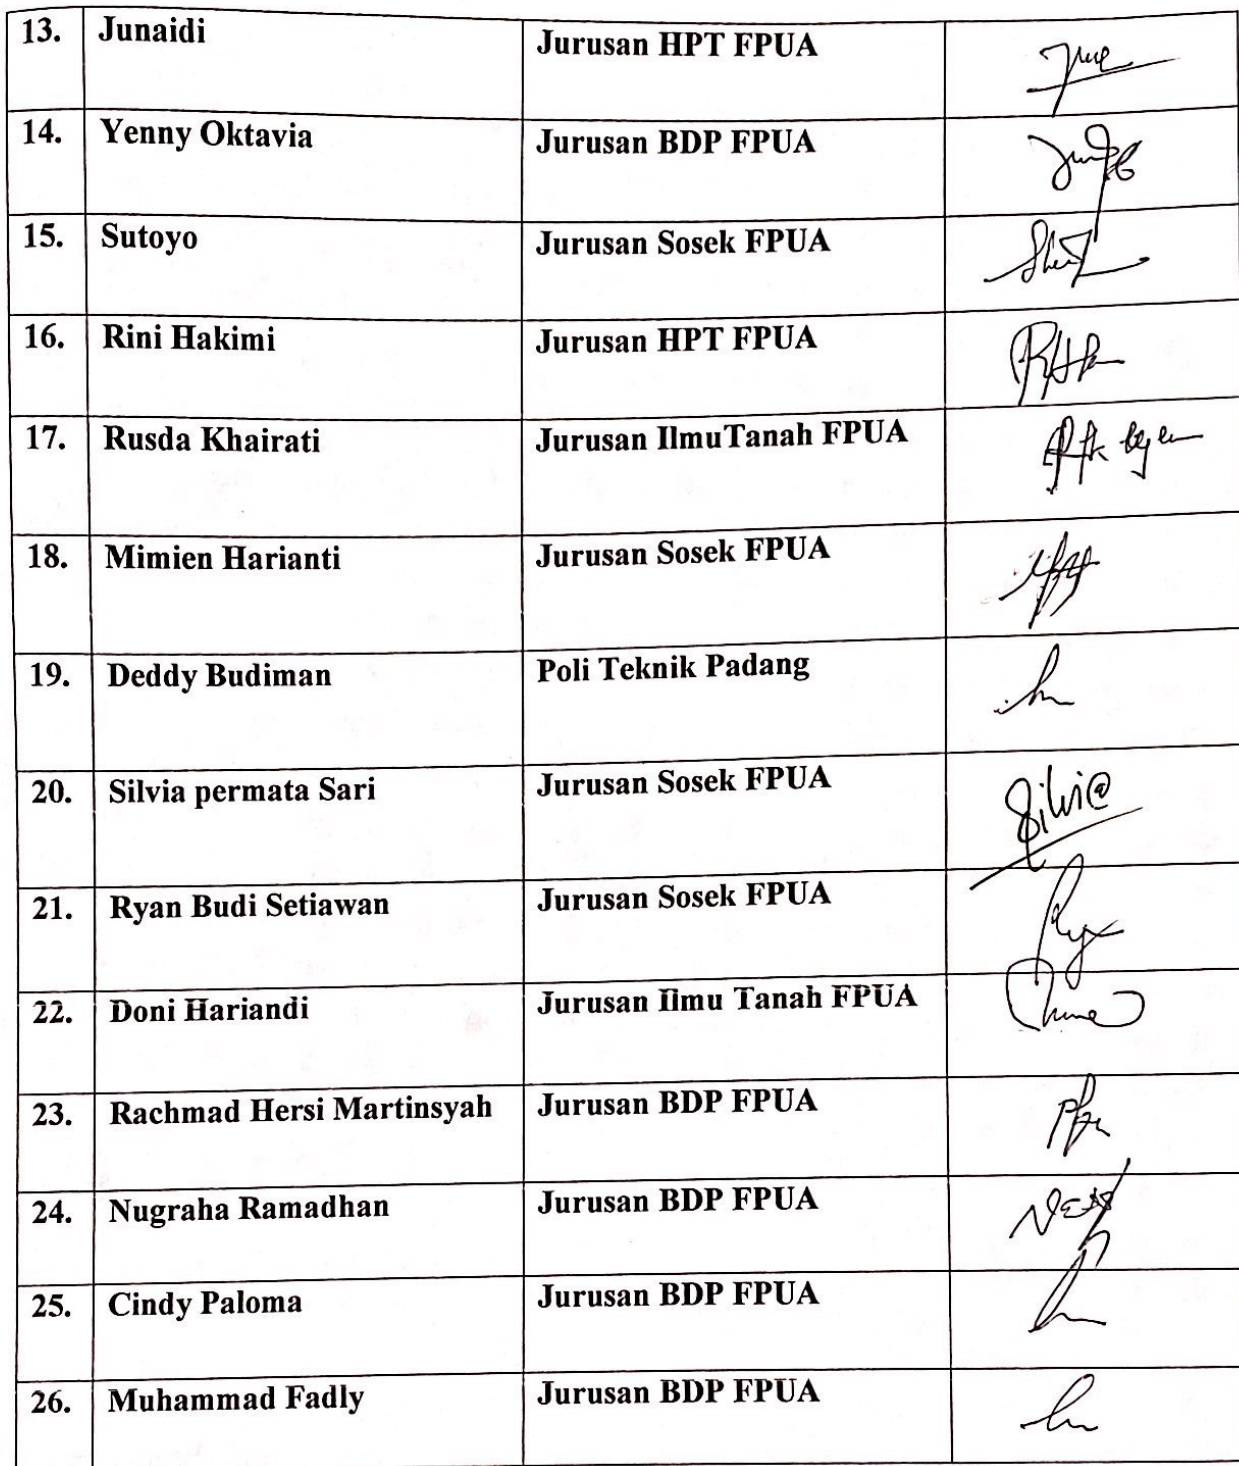 13. Junaidi Jurusan HPT FPUA
14. Yenny Oktavia Jurusan BDP FPUA
15. Sutoyo Jurusan Sosek FPUA
16. Rini Hakimi Jurusan HPT FPUA
17. Rusda Khairati Jurusan IlmuTanah FPUA
18. Mimien Harianti Jurusan Sosek FPUA
19. Deddy Budiman Poli Teknik Padang
20. Silvia permata Sari Jurusan Sosek FPUA Silvi@
21. Ryan Budi Setiawan Jurusan Sosek FPUA
22. Doni Hariandi Jurusan Ilmu Tanah FPUA
23. Rachmad Hersi Martinsyah Jurusan BDP FPUA
24. Nugraha Ramadhan Jurusan BDP FPUA
25. Cindy Paloma Jurusan BDP FPUA
26. Muhammad Fadly Jurusan BDP FPUA